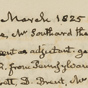 March 1825
, Mr Southard the
out as adjutant ge
, from Pennsylvan
ott D. Brent, Mr